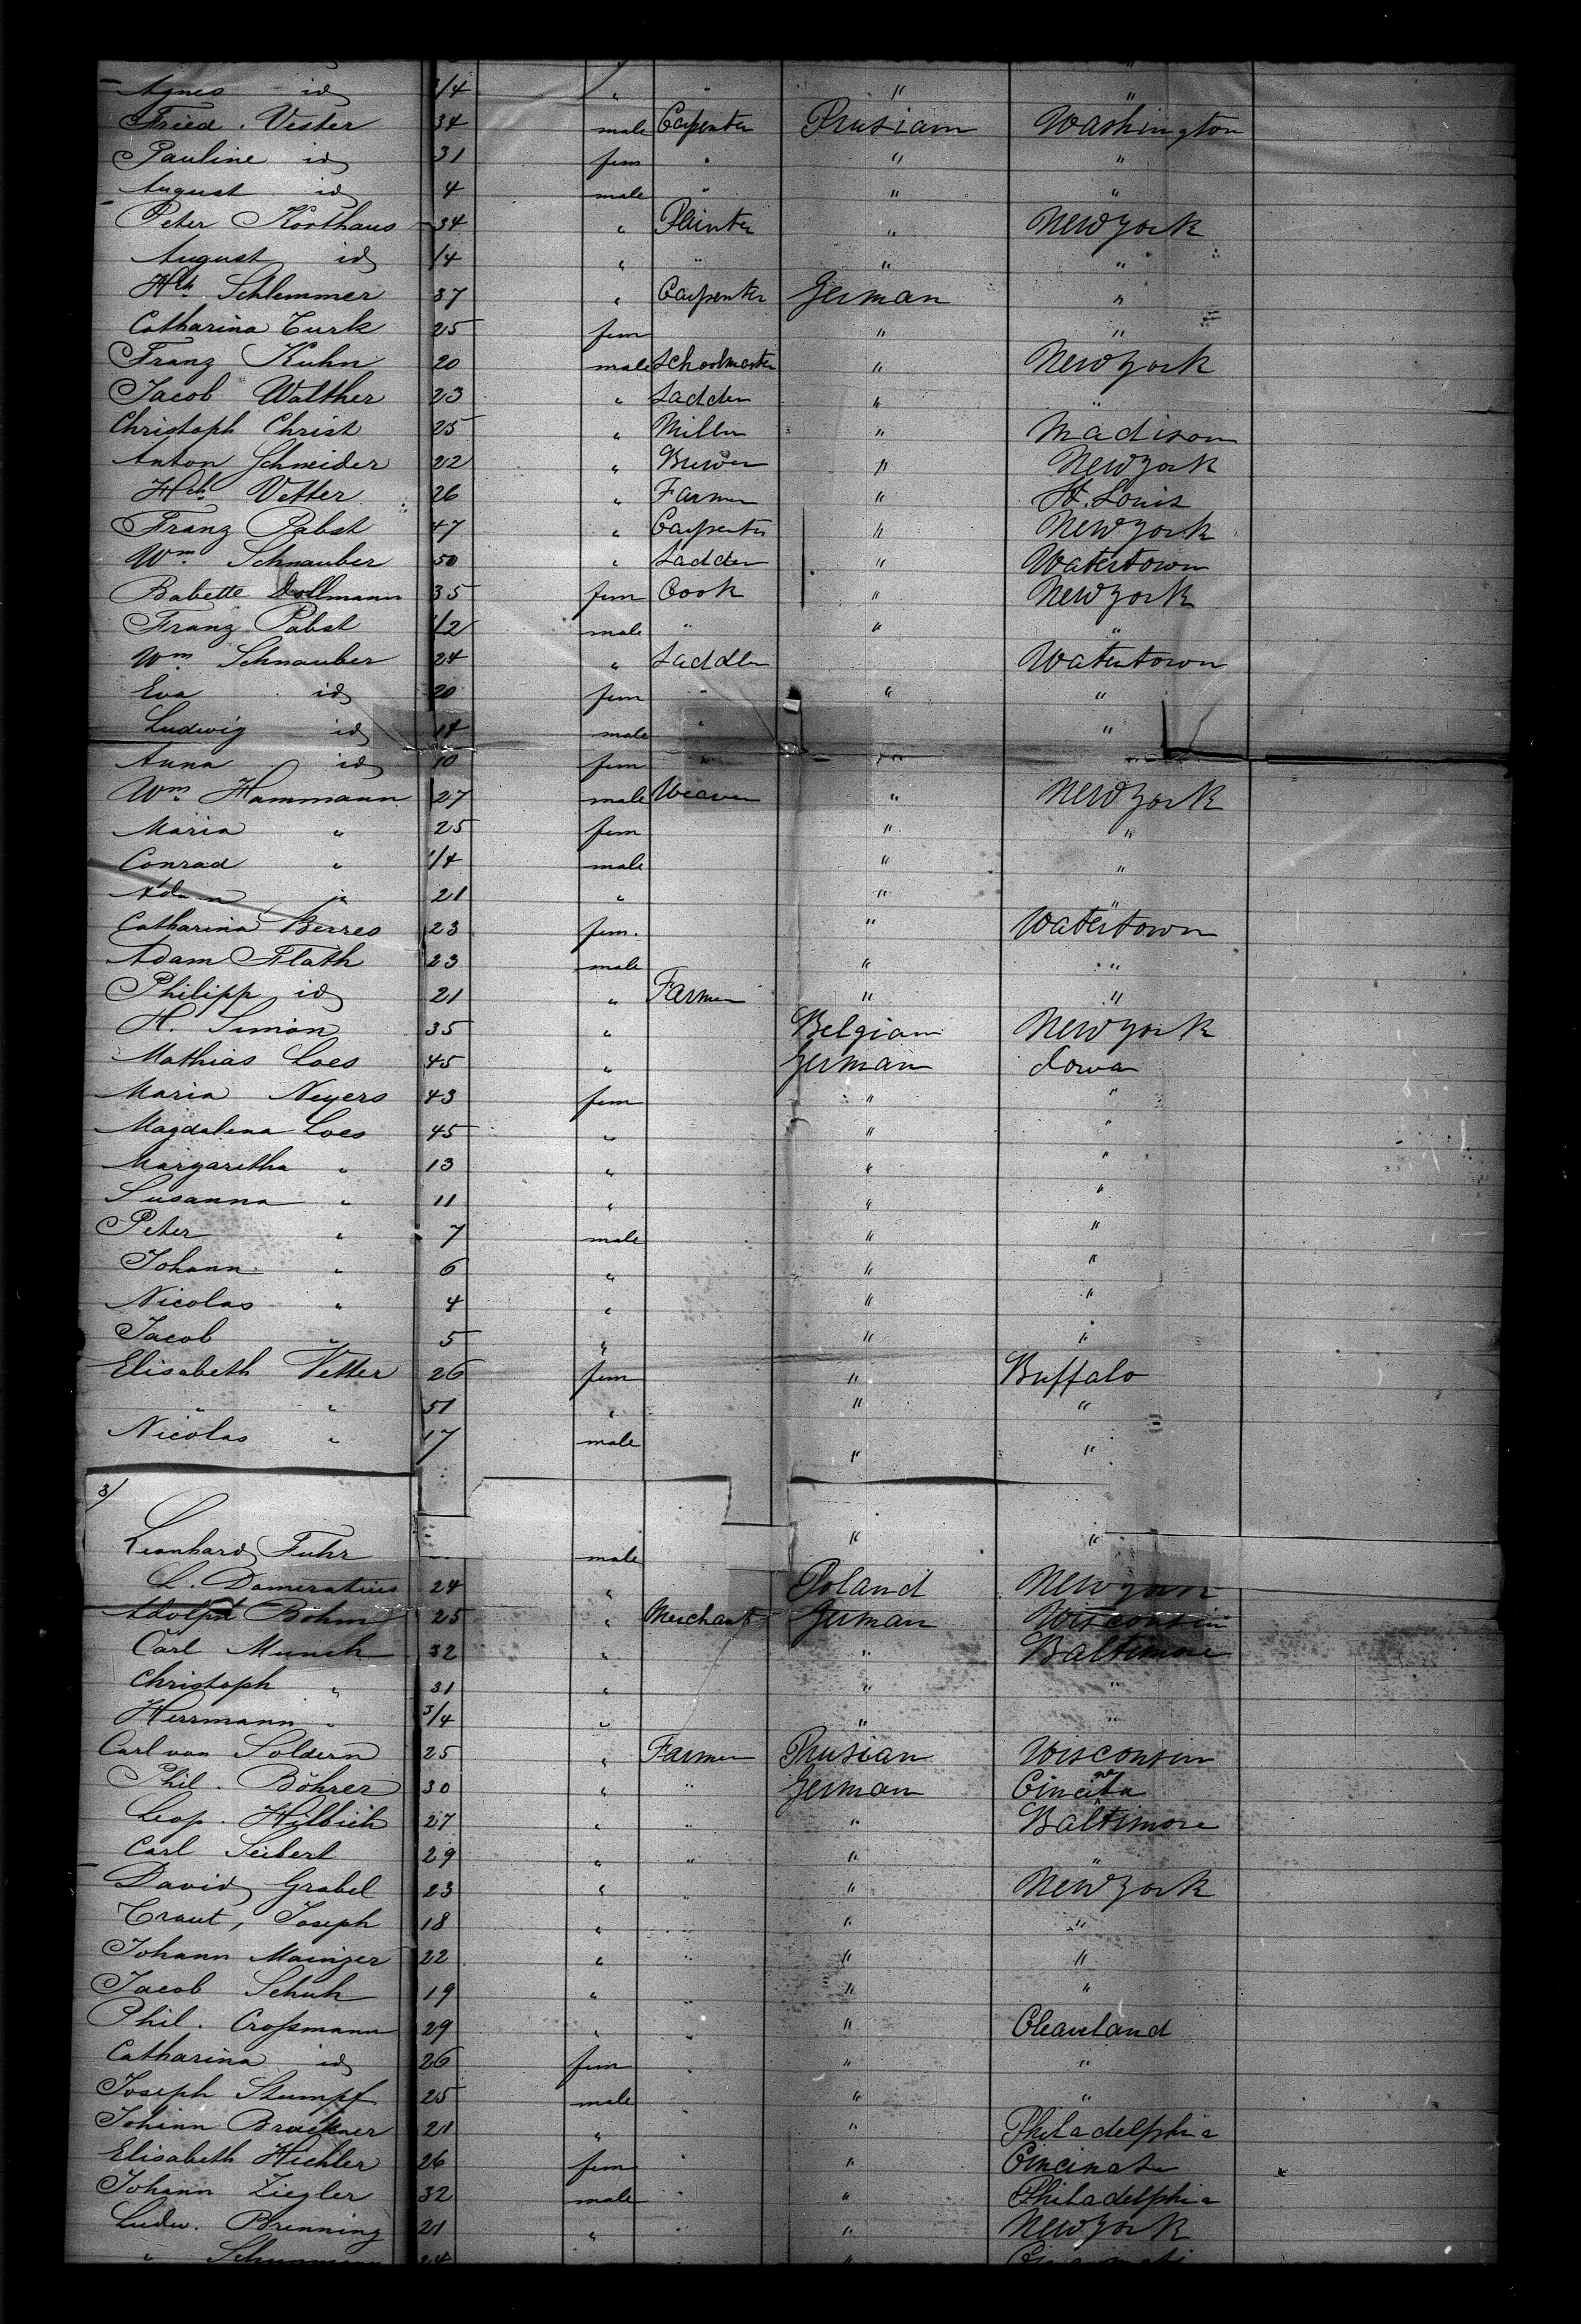 Agnes id 1/4 " " " "
Fried. Vester 34 male Carpenter Prusian Washington
Pauline id 31 fem " " "
August id 4 male " " "
Peter Korthaus 34 " Painter " New York
August id 14 " " " "
Hch. Schlemmer 37 " Carpenter German "
Catharina Turk 25 fem " "
Franz Kuhn 20 male Schoolmaster " New York
Jacob Walther 23 " Sadder " "
Christoph Christ 25 " Miller " Madison
Anton Schneider 22 " Brewer " New York
Hch. Vetter 26 " Farmer " St. Louis
Franz Pabst 47 " Carpenter " New York
Wm. Schnauber 50 " Sadder " Watertown
Babette Dollmann 35 fem Cook " New York
Franz Pabst 1/2 male " " "
Wm. Schnauber 24 " Saddler Watertown
Eva id 20 fem " " "
Ludwig id 14 male " "
Anna id 10 fem " " "
Wm. Hammann 27 male Weaver " New York
Maria " 25 fem " "
Conrad " 1/4 male " "
Adam 21 " " "
Catharina Berres 23 fem. " Watertown
Adam Flath 23 male " "
Philipp id 21 " Farmer " "
H. Simon 35 " Belgian New York
Mathias Loes 45 " German Iowa
Maria Neyers 43 fem " "
Magdalena Loes 45 " " "
Margaretha " 13 " " "
Susanna " 11 " " "
Peter " 7 male " "
Johann " 6 " " "
Nicolas " 4 " " "
Jacob " 5 " " "
Elisabeth Vetter 26 fem " Buffalo
" " 51 " " "
Nicolas " 17 male " "
3/
Leonhard Fuhr male " "
L. Domeratius 24 " Poland New York
Adolph Bohm 25 " Merchant German Wisconsin
Carl Munch 32 " " Baltimore
Christoph " 31 " " "
Herrmann " 3/4 " " "
Carl von Soldern 25 " Farmer Prusian Wisconsin
Phil. Böhrer 30 " " German
Leop. Hilbich 27 " " " Baltimore
Carl Seibert 29 " " " "
David Grabel 23 " " " New York
Traut, Joseph 18 " " "
Johann Mainzer 22 " " " "
Jacob Schuh 19 " " " "
Phil. Croßmann 29 " " " Cleaveland
Catharina id 26 fem " " "
Joseph Stumpf 25 male " "
Johann Bruckner 21 " " " Philadelphia
Elisabeth Hichler 26 fem " " Cincinati
Johann Ziegler 32 male " " Philadelphia
Ludw. Brenning 21 " " " New York
" 24 "